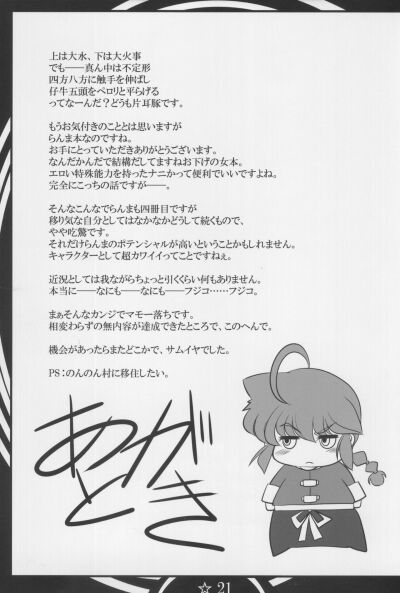 上は大水、下は大火事
でも――真ん中は不定形
四方八方に触手を伸ばし
仔牛五頭をペロリと平らげる
ってなーんだ？どうも片耳豚です。
もうお気付きのこととは思いますが
らんま本なのですね。
お手にとっていただきありがとうございます。
なんだかんだで結構だしてますねお下げの女本。
エロい特殊能力を持ったナニかって便利でいいですよね。
完全にこっちの話ですが――。
そんなこんなでらんまも四冊目ですが
移り気な自分としてはなかなかどうして続くもので、
やや吃驚です。
それだけらんまのポテンシャルが高いということかもしれません。
キャラクターとして超カワイイってことですねぇ。
近況としては我ながらちょっと引くくらい何もありません。
本当に――なにも――なにも――フジコ……フジコ。
まぁそんなカンジでマモー落ちです。
相変わらずの無内容が達成できたところで、このへんで。
機会があったらまたどこかで、サムイヤでした。
PS：のんのん村に移住したい。
あとがき
☆ 21